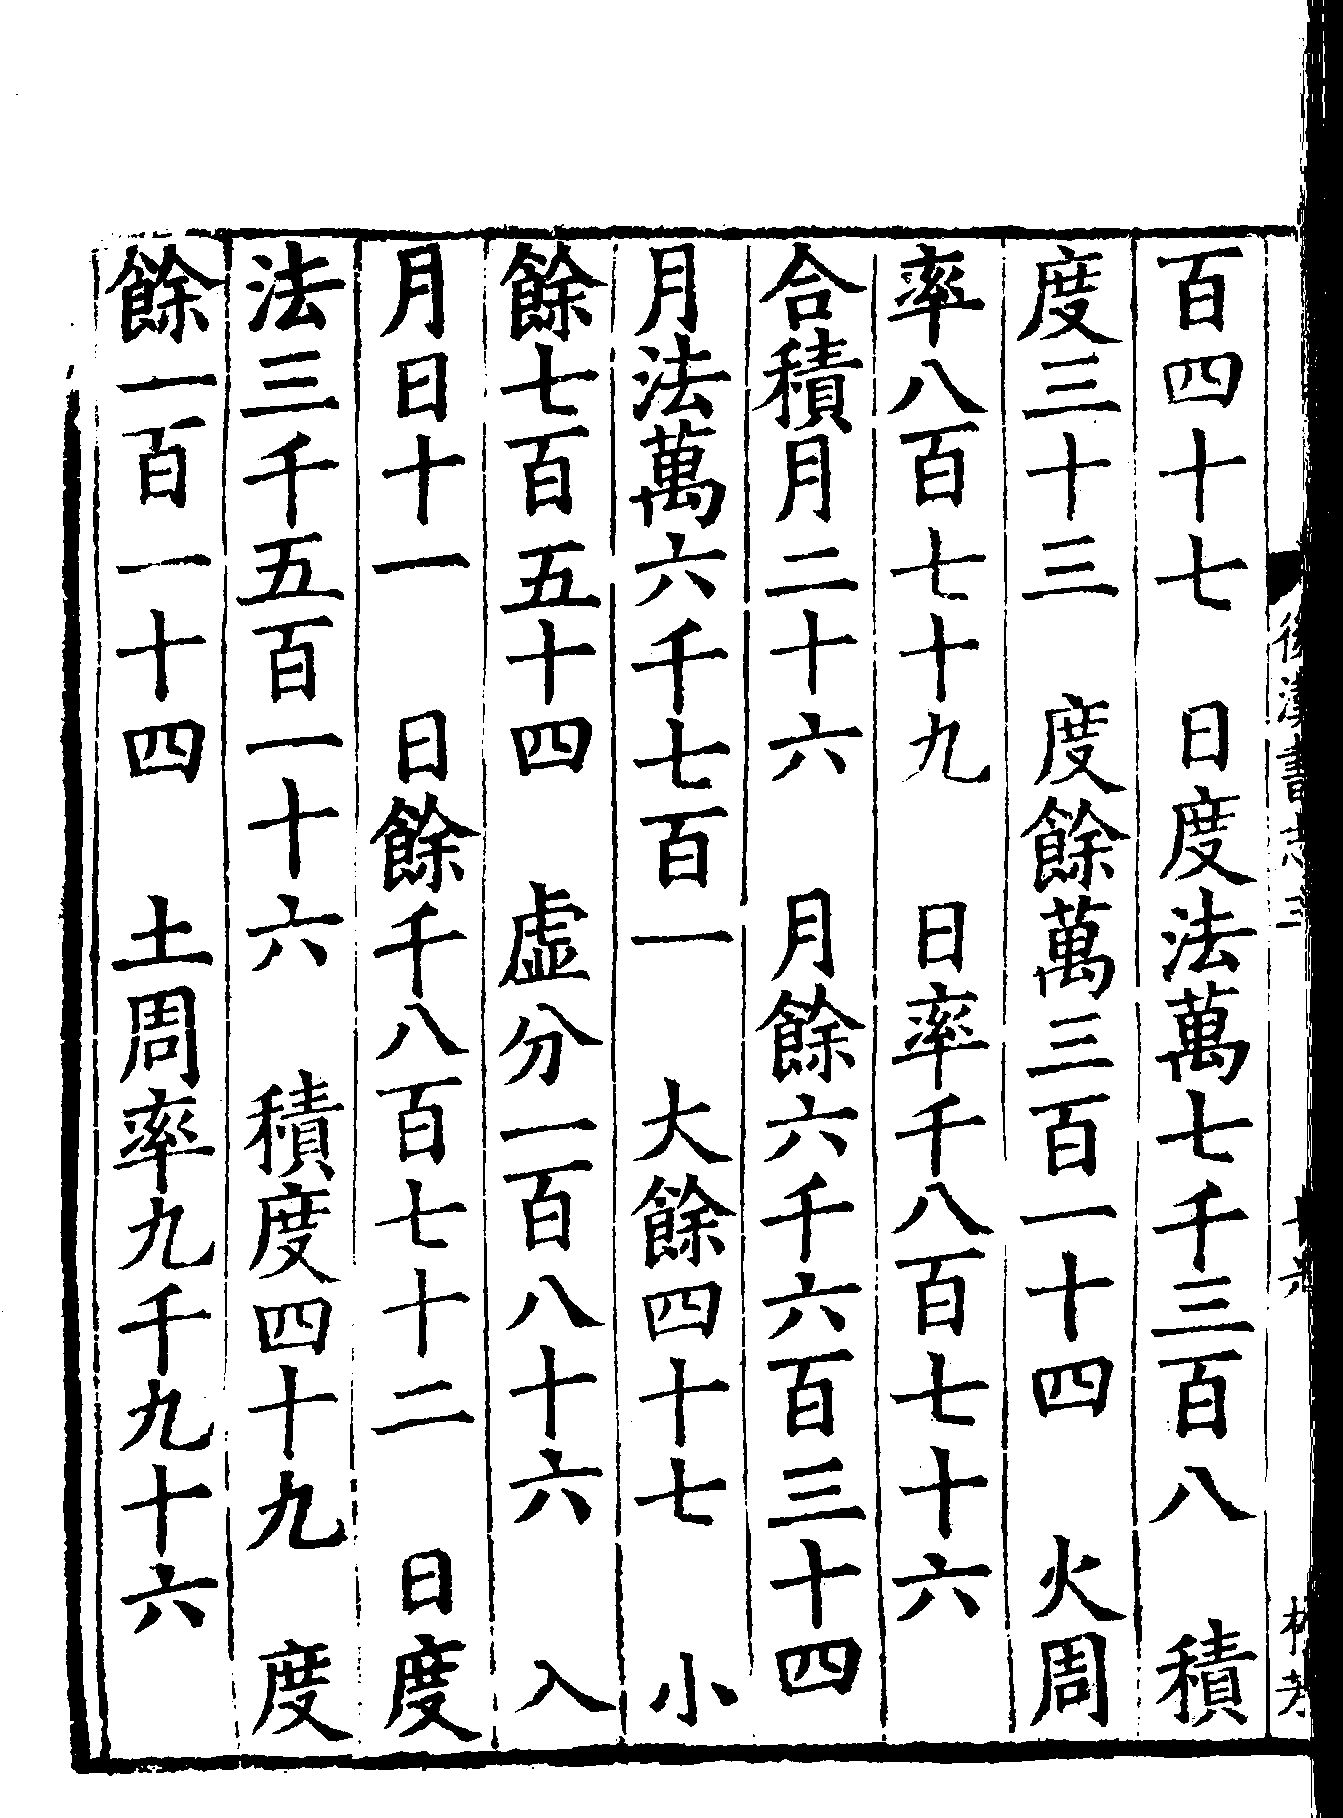 後漢書志三
百四十七　日度法萬七千三百八　積
度三十三　度餘萬三百一十四　火周
率八百七十九　日率千八百七十六
合積月二十六　月餘六千六百三十四
月法萬六千七百一　大餘四十七　小
餘七百五十四　虛分一百八十六　入
月日十一　日餘千八百七十二　日度
法三千五百一十六　積度四十九　度
餘一百一十四　土周率九千九十六